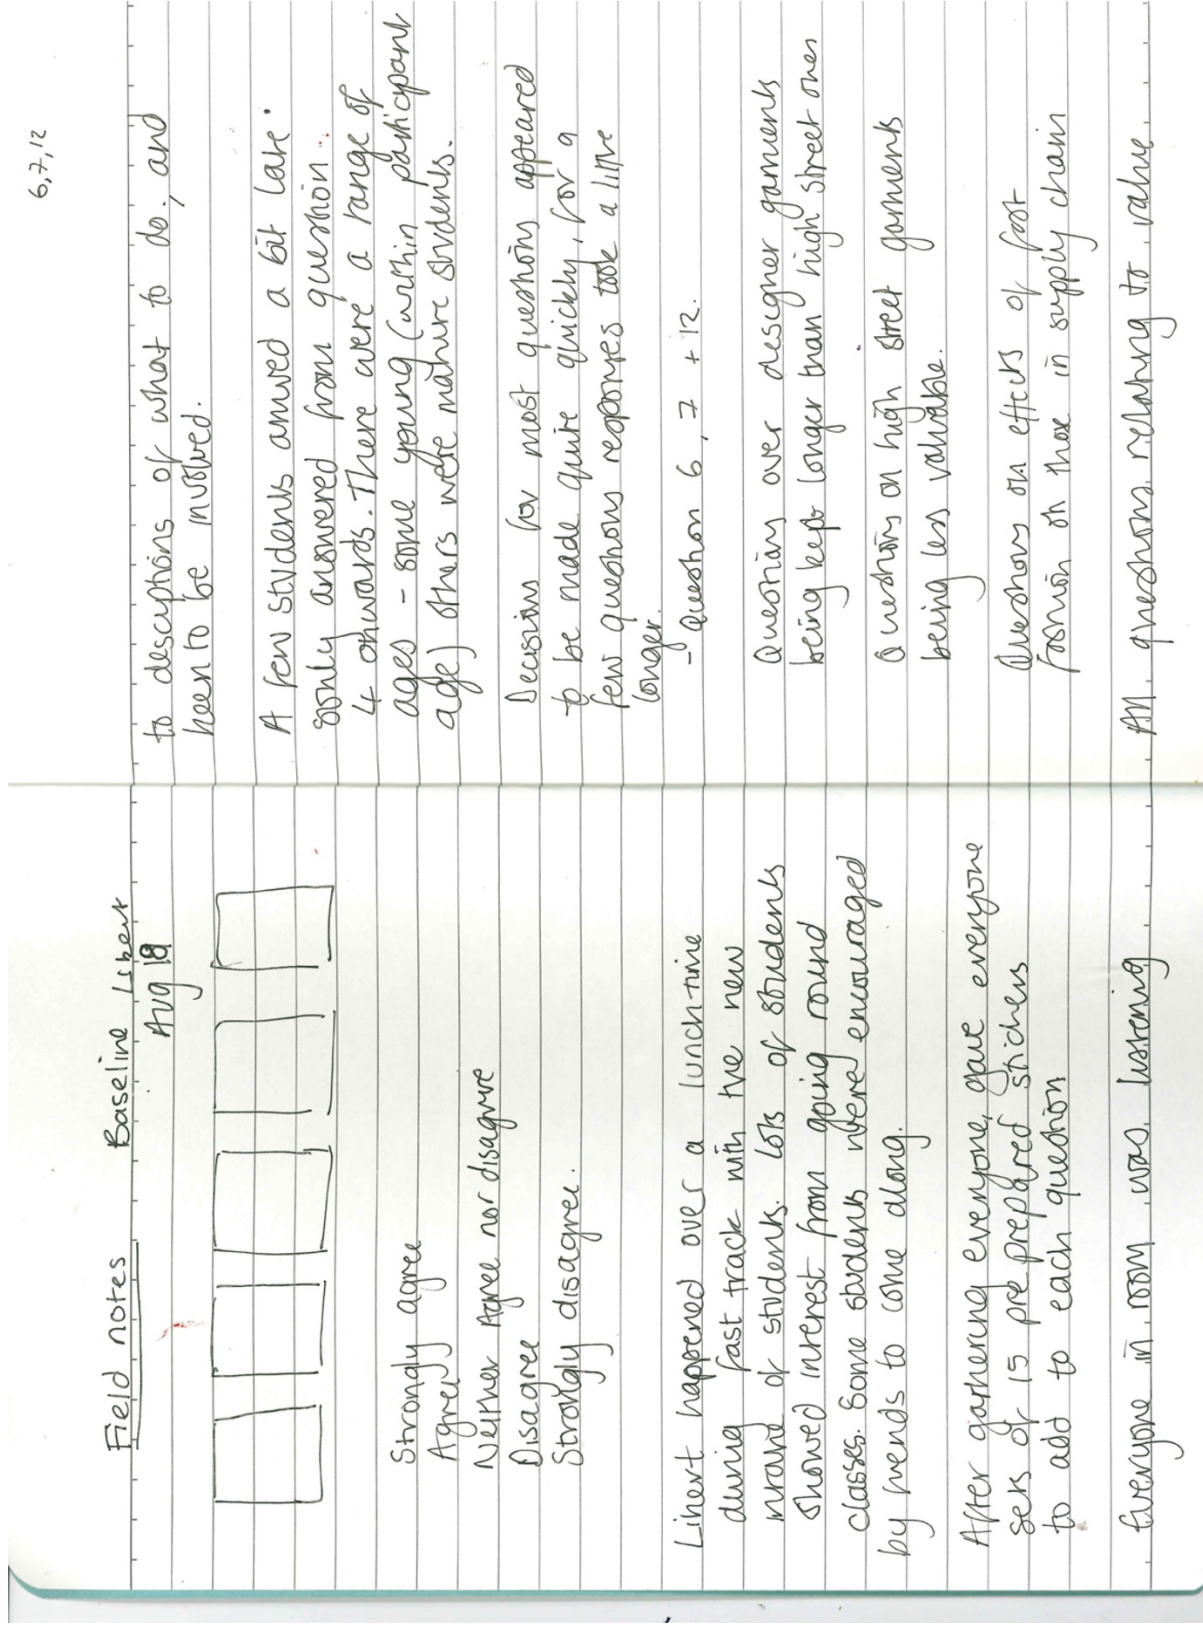 Field notes Baseline Likert
Aug 18
Strongly agree
Agree
Neither Agree nor disagree
Disagree
Strongly disagree.
Likert happened over a lunchtime
during fast track with the new
intake of students. Lots of students
showed interest from going round
classes. Some students were encouraged
by friends to come along.
After gathering everyone, gave everyone
sets of 15 pre prepared stickers
to add to each question
Everyone in room was listening
6,7,12
to desciptions of what to do, and
keen to be involved.
A few students arrived a bit late.
so only answered from question
4 onwards. There were a range of
ages - some young (within participant
age) others were mature students.
Decisions for most questions appeared
to be made quite quickly, for a
few questions responses took a little
longer.
- Question 6, 7 + 12.
Questions over designer garments
being kept longer than high street ones
Questions on high street garments
being less valuable.
Questions on effects of fast
fashion on those in supply chain
All questions relating to value.